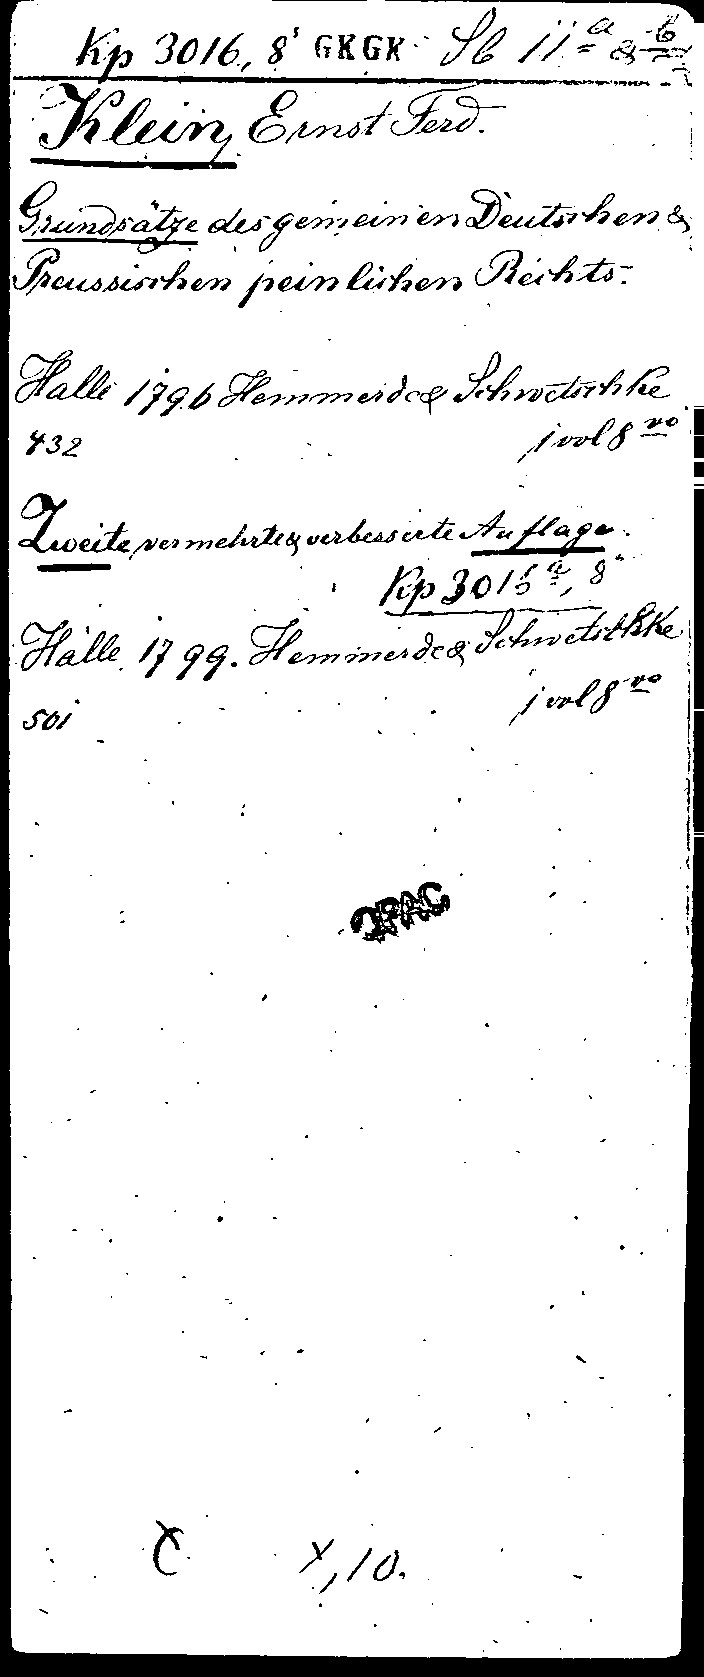 Kp 3016, 8° GKGK Sb 11 a & b
Klein, Ernst Ferd.
Grundsätze des gemeinen Deutschen &
Preussischen peinlichen Rechts.
Halle 1796 Hemmerde & Schwetschke
432 1 vol 8 vo
Zweite, vermehrte & verbesserte Auflage.
Kp 3016 a, 8°
Halle 1799. Hemmerde & Schwetschke
501 1 vol 8 vo
X, 10.